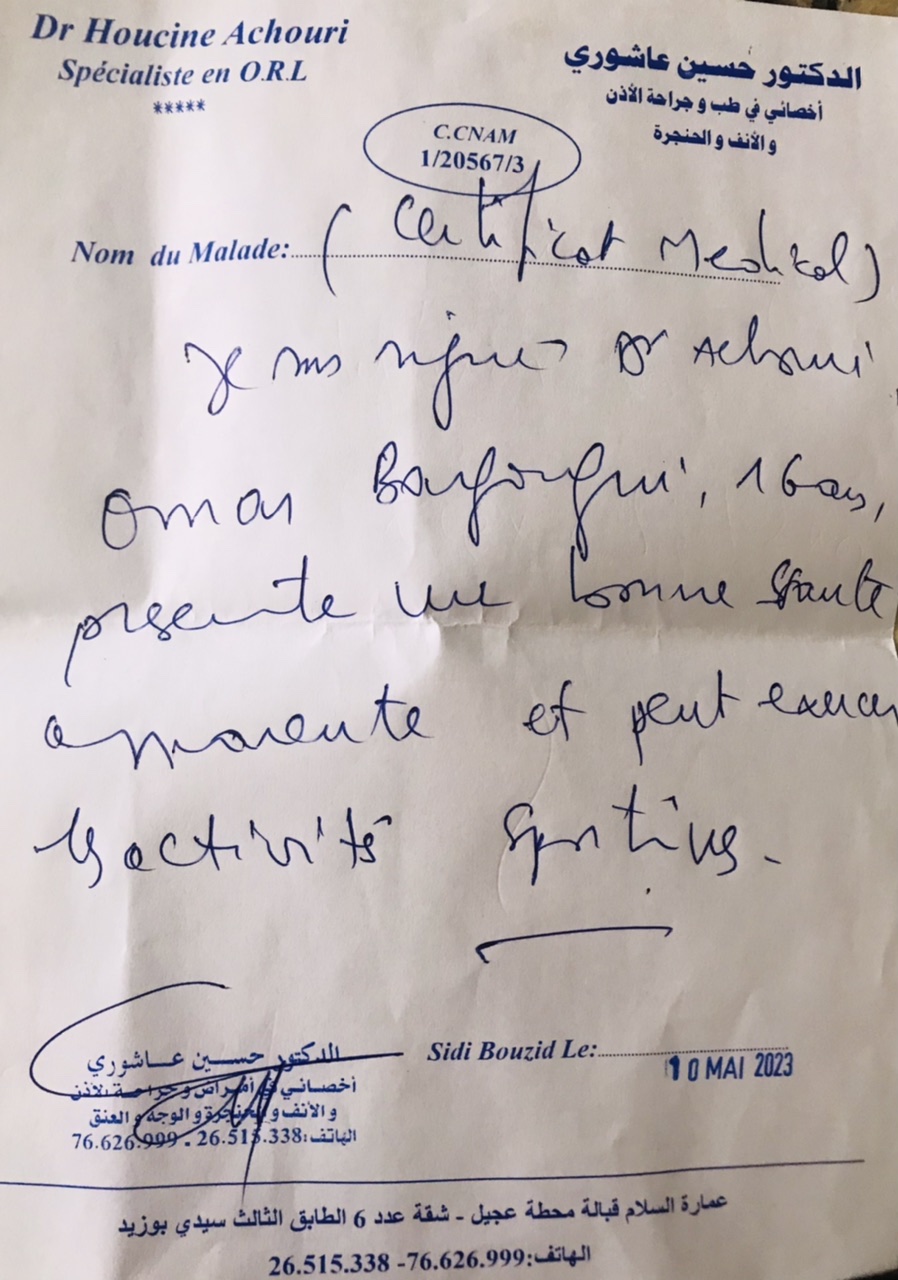 Dr Houcine Achouri
Spécialiste en O.R.L
*****
الدكتور حسين عاشوري
أخصائي في طب و جراحة الأذن
و الأنف و الحنجرة
C.CNAM
1/20567/3
Nom du Malade: (Certificat Medical)
Je sous signé Dr Achouri
Omar, 16 ans,
presente une bonne Santé
apparente et peut exercer
les activités Sportives.
Sidi Bouzid Le: 10 MAI 2023
الدكتور حسين عاشوري
أخصائي في أمراض و جراحة الأذن
و الأنف و الحنجرة و الوجه و العنق
الهاتف: 26.515.338 . 76.626.999
عمارة السلام قبالة محطة عجيل - شقة عدد 6 الطابق الثالث سيدي بوزيد
الهاتف: 76.626.999- 26.515.338